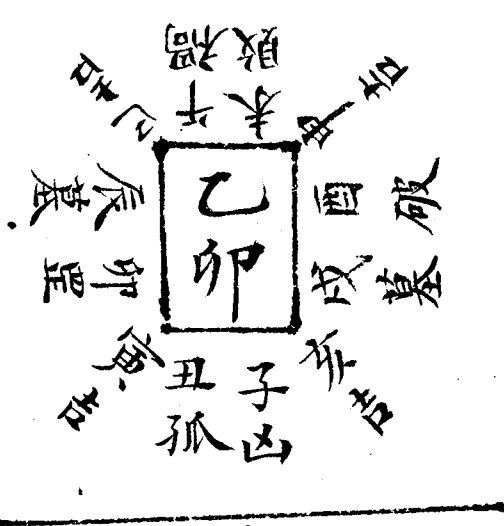 乙卯
子凶
丑孤
寅吉
卯
辰墓
巳吉
午禍
未敗
申吉
酉破
戌墓
亥吉